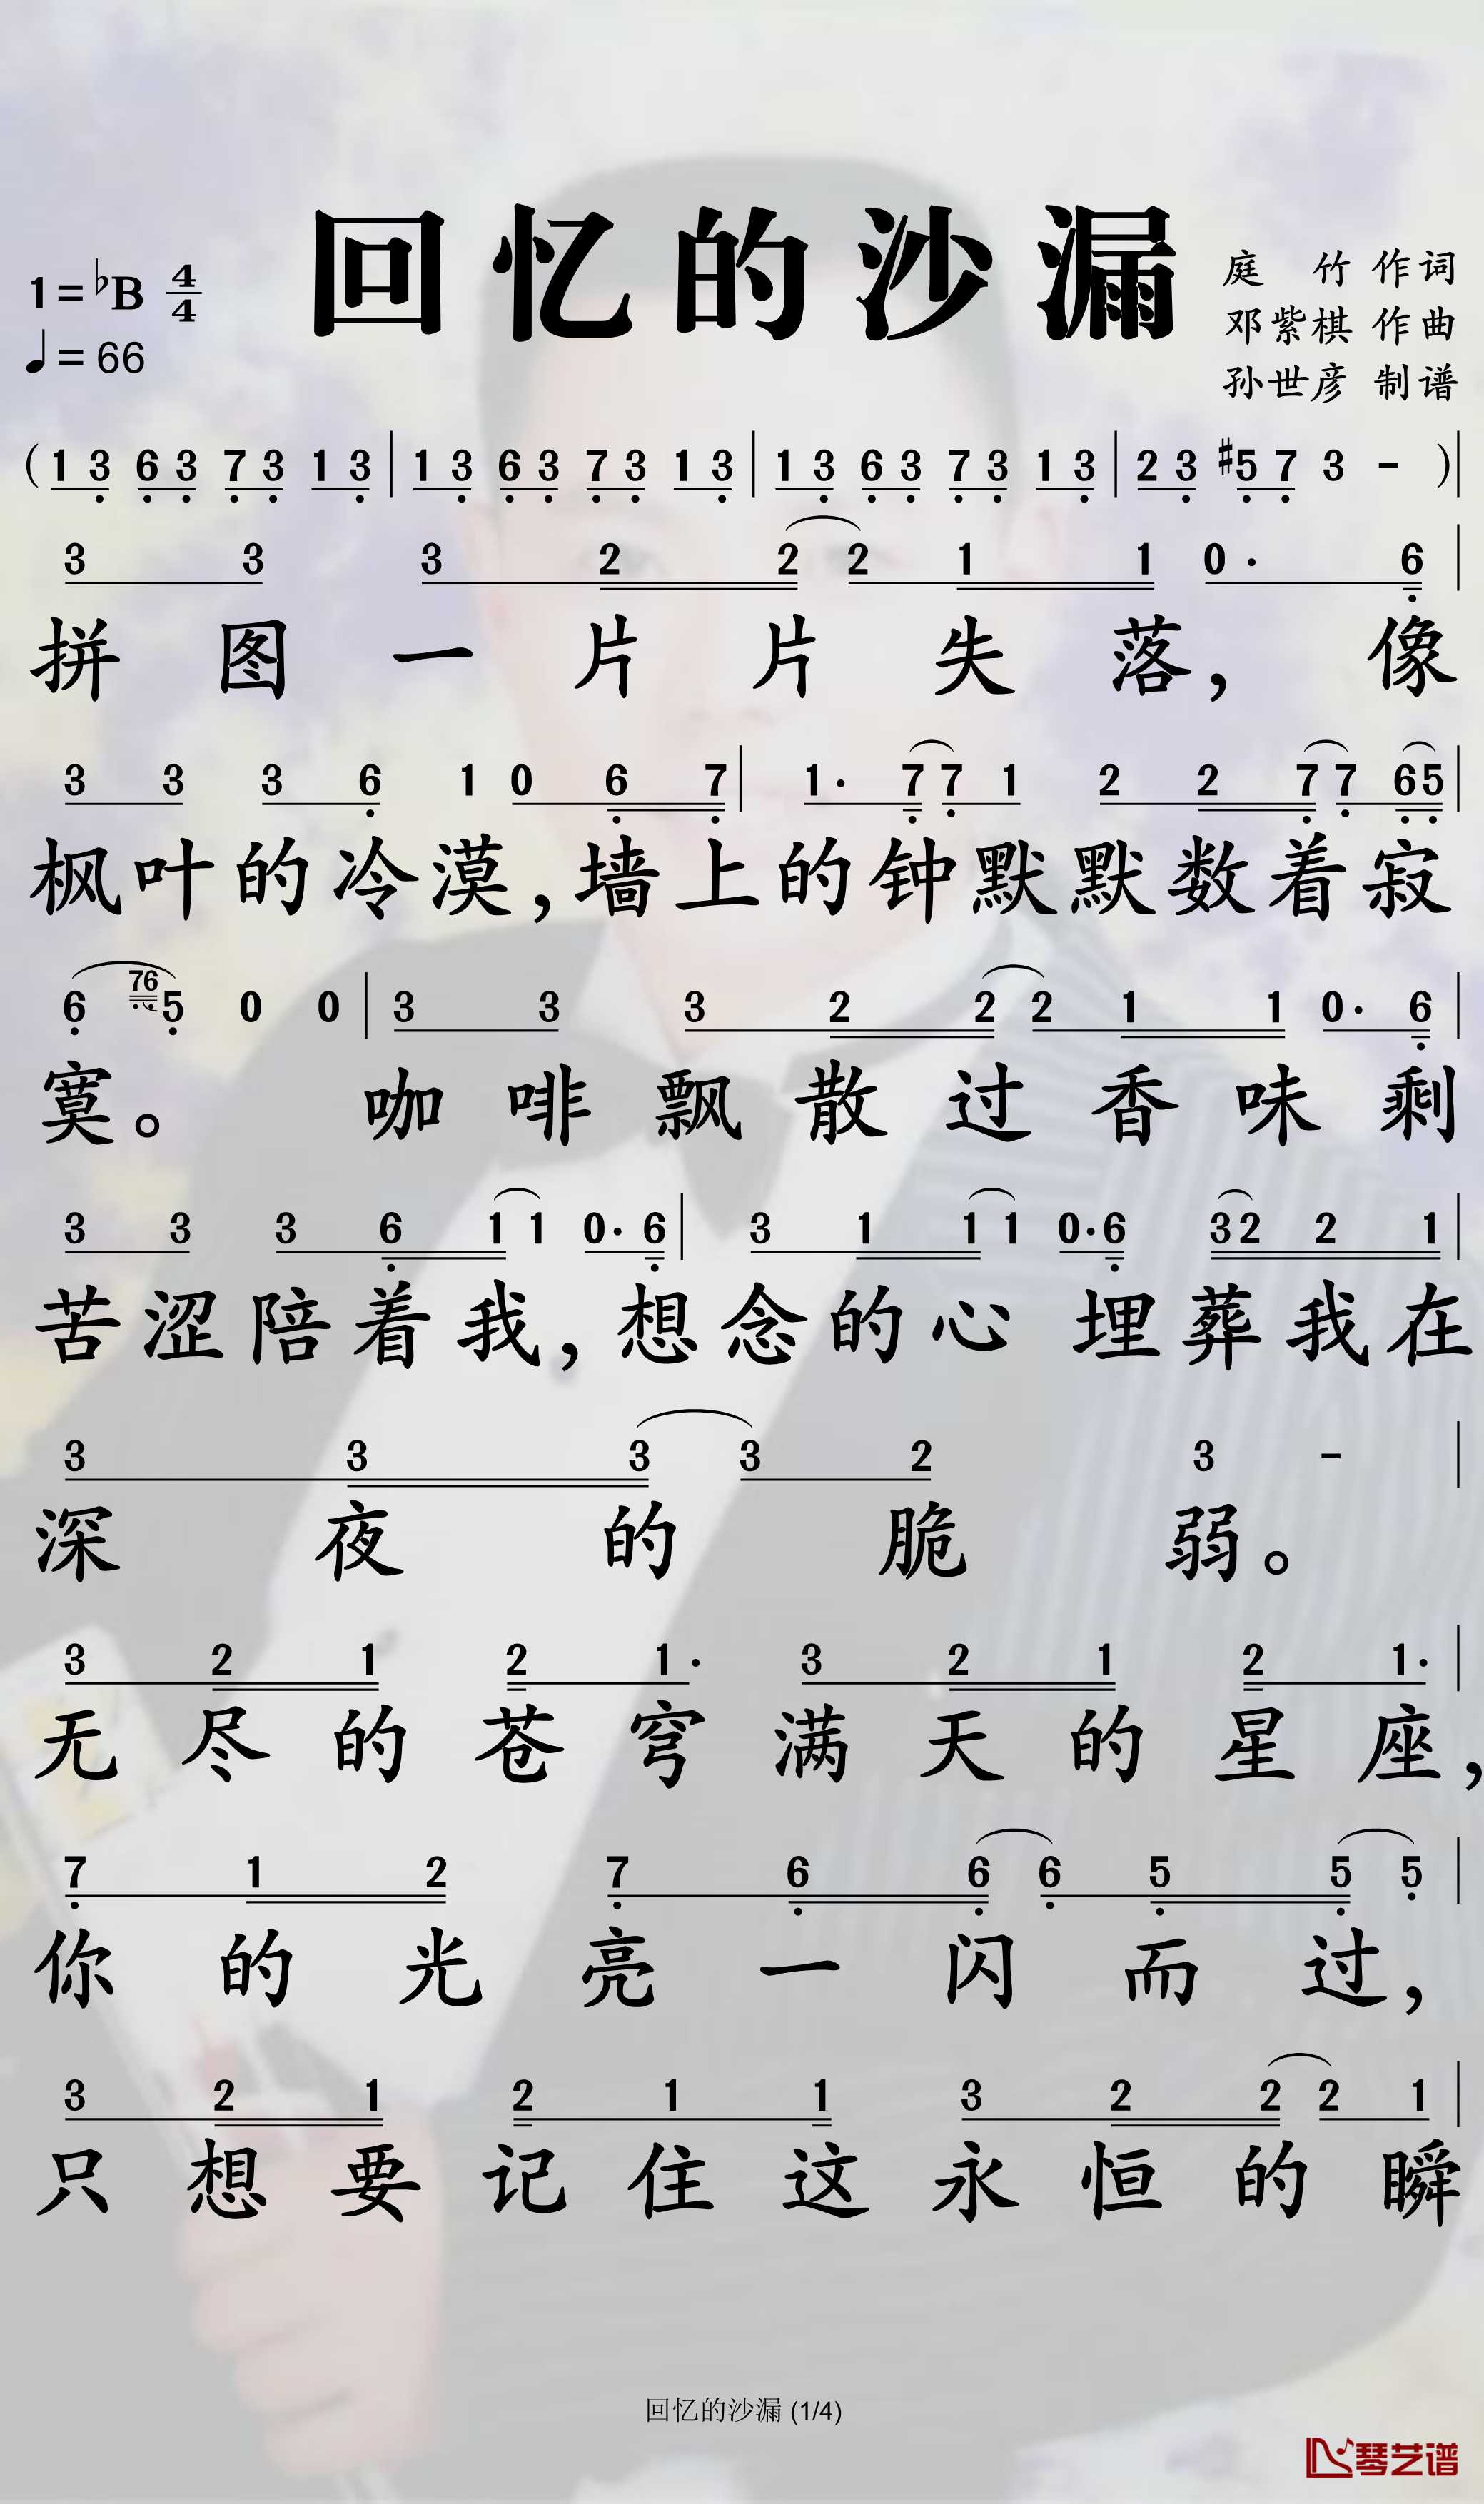 回忆的沙漏
1=♭B 4/4
♩=66
庭 竹 作词
邓紫棋 作曲
孙世彦 制谱
(1 3 6 3 7 3 1 3 | 1 3 6 3 7 3 1 3 | 1 3 6 3 7 3 1 3 | 2 3 #5 7 3 - )|
3 3 3 2 2 2 1 1 0· 6 |
拼图一片片失落，像
3 3 3 6 1 0 6 7 | 1· 7 7 1 2 2 7 7 6 5 |
枫叶的冷漠，墙上的钟默默数着寂
6 76 5 0 0 | 3 3 3 2 2 2 1 1 0· 6 |
寞。 咖啡飘散过香味剩
3 3 3 6 1 1 0· 6 | 3 1 1 1 0· 6 3 2 2 1 |
苦涩陪着我，想念的心 埋葬我在
3 3 3 3 2 3 - |
深夜的脆弱。
3 2 1 2 1· 3 2 1 2 1· |
无尽的苍穹满天的星座，
7 1 2 7 6 6 6 5 5 5 |
你的光亮一闪而过，
3 2 1 2 1 1 3 2 2 2 1 |
只想要记住这永恒的瞬
回忆的沙漏 (1/4)
琴艺谱